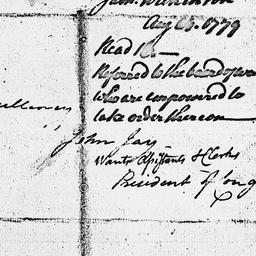 Aug 25. 1779
Read 18.
Referred to the board of war
who are empowered to
take order thereon
John Jay
Wants Assistants & Clerks
President of Cong